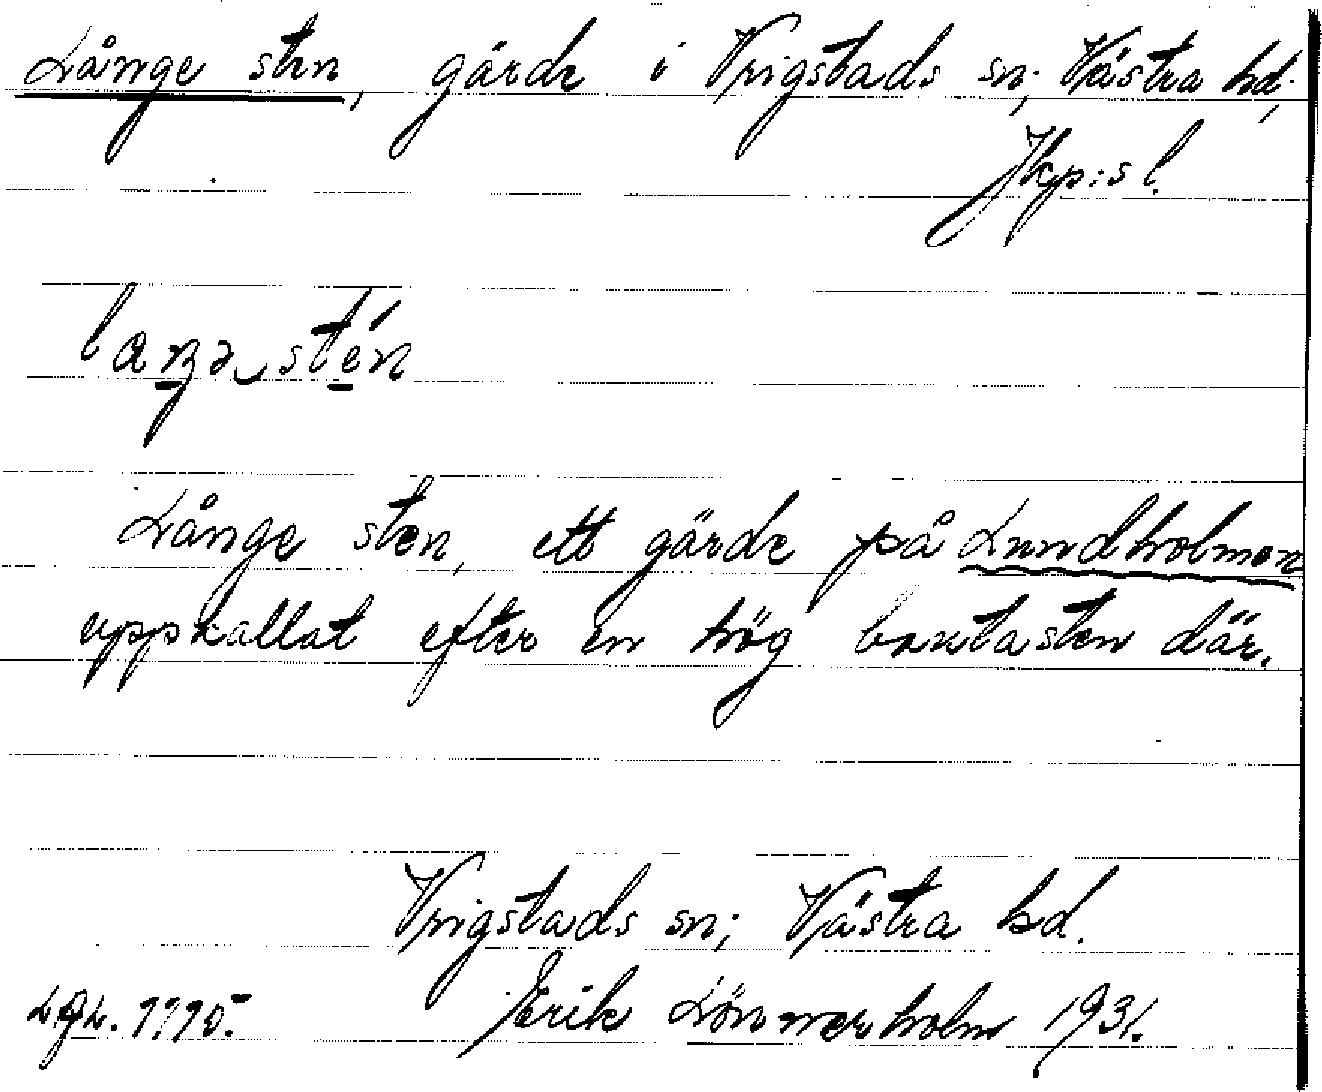 Långe sten, gärde i Vrigstads sn; Västra hd;
Jkp:s l.
Långe sten, ett gärde på Lundholmen
uppkallat efter en hög bautasten där.
Vrigstads sn; Västra hd.
Erik Lönnerholm 1931.